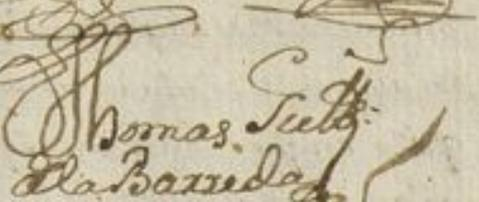 Thomas Gutrz.
dla Barreda